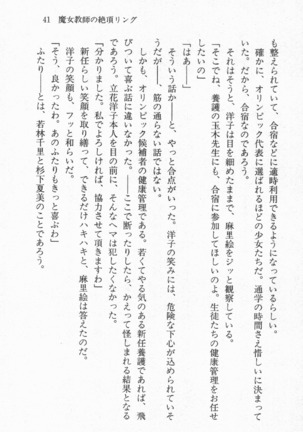 41　魔女教師の絶頂リング
も整えられていて、合宿などに適時利用できるようになっているらしい。
　確かに、オリンピック代表に選ばれるほどの少女たちだ。通学の時間さえ惜しいに決まって
いた。だから、合宿なのであろう。
　それはそうと、洋子は目を細めたままで、麻里絵をジッと観察している。
「そこでね、養護の玉木先生にも、合宿に参加してほしいのよ。生徒たちの健康管理をお任せ
したいの」
「はあ——」
　そういう話か——と、やっと合点がいった。洋子の笑みには、危険な下心が込められていそ
うだが——、筋の通らない話ではない。
　しかも、オリンピック候補者の健康管理である。若くてやる気のある新任養護であれば、飛
びついて喜ぶ話に違いなかった。——ここで断ったりしたら、かえって怪しまれる結果となる
であろう。立花洋子本人を目の前に、そんなヘマは犯したくなかった。
「分かりました。私でよろしければ、協力させて頂きますわ」
　新任らしい笑顔を取り繕って、できるだけハキハキと、麻里絵は答えたのだ。
　洋子の笑顔も、フッと和らいだ。
「そう、良かったわ。あのふたりもきっと喜ぶわ」
　ふたり——とは、若林千里と杉下夏美のことであろう。